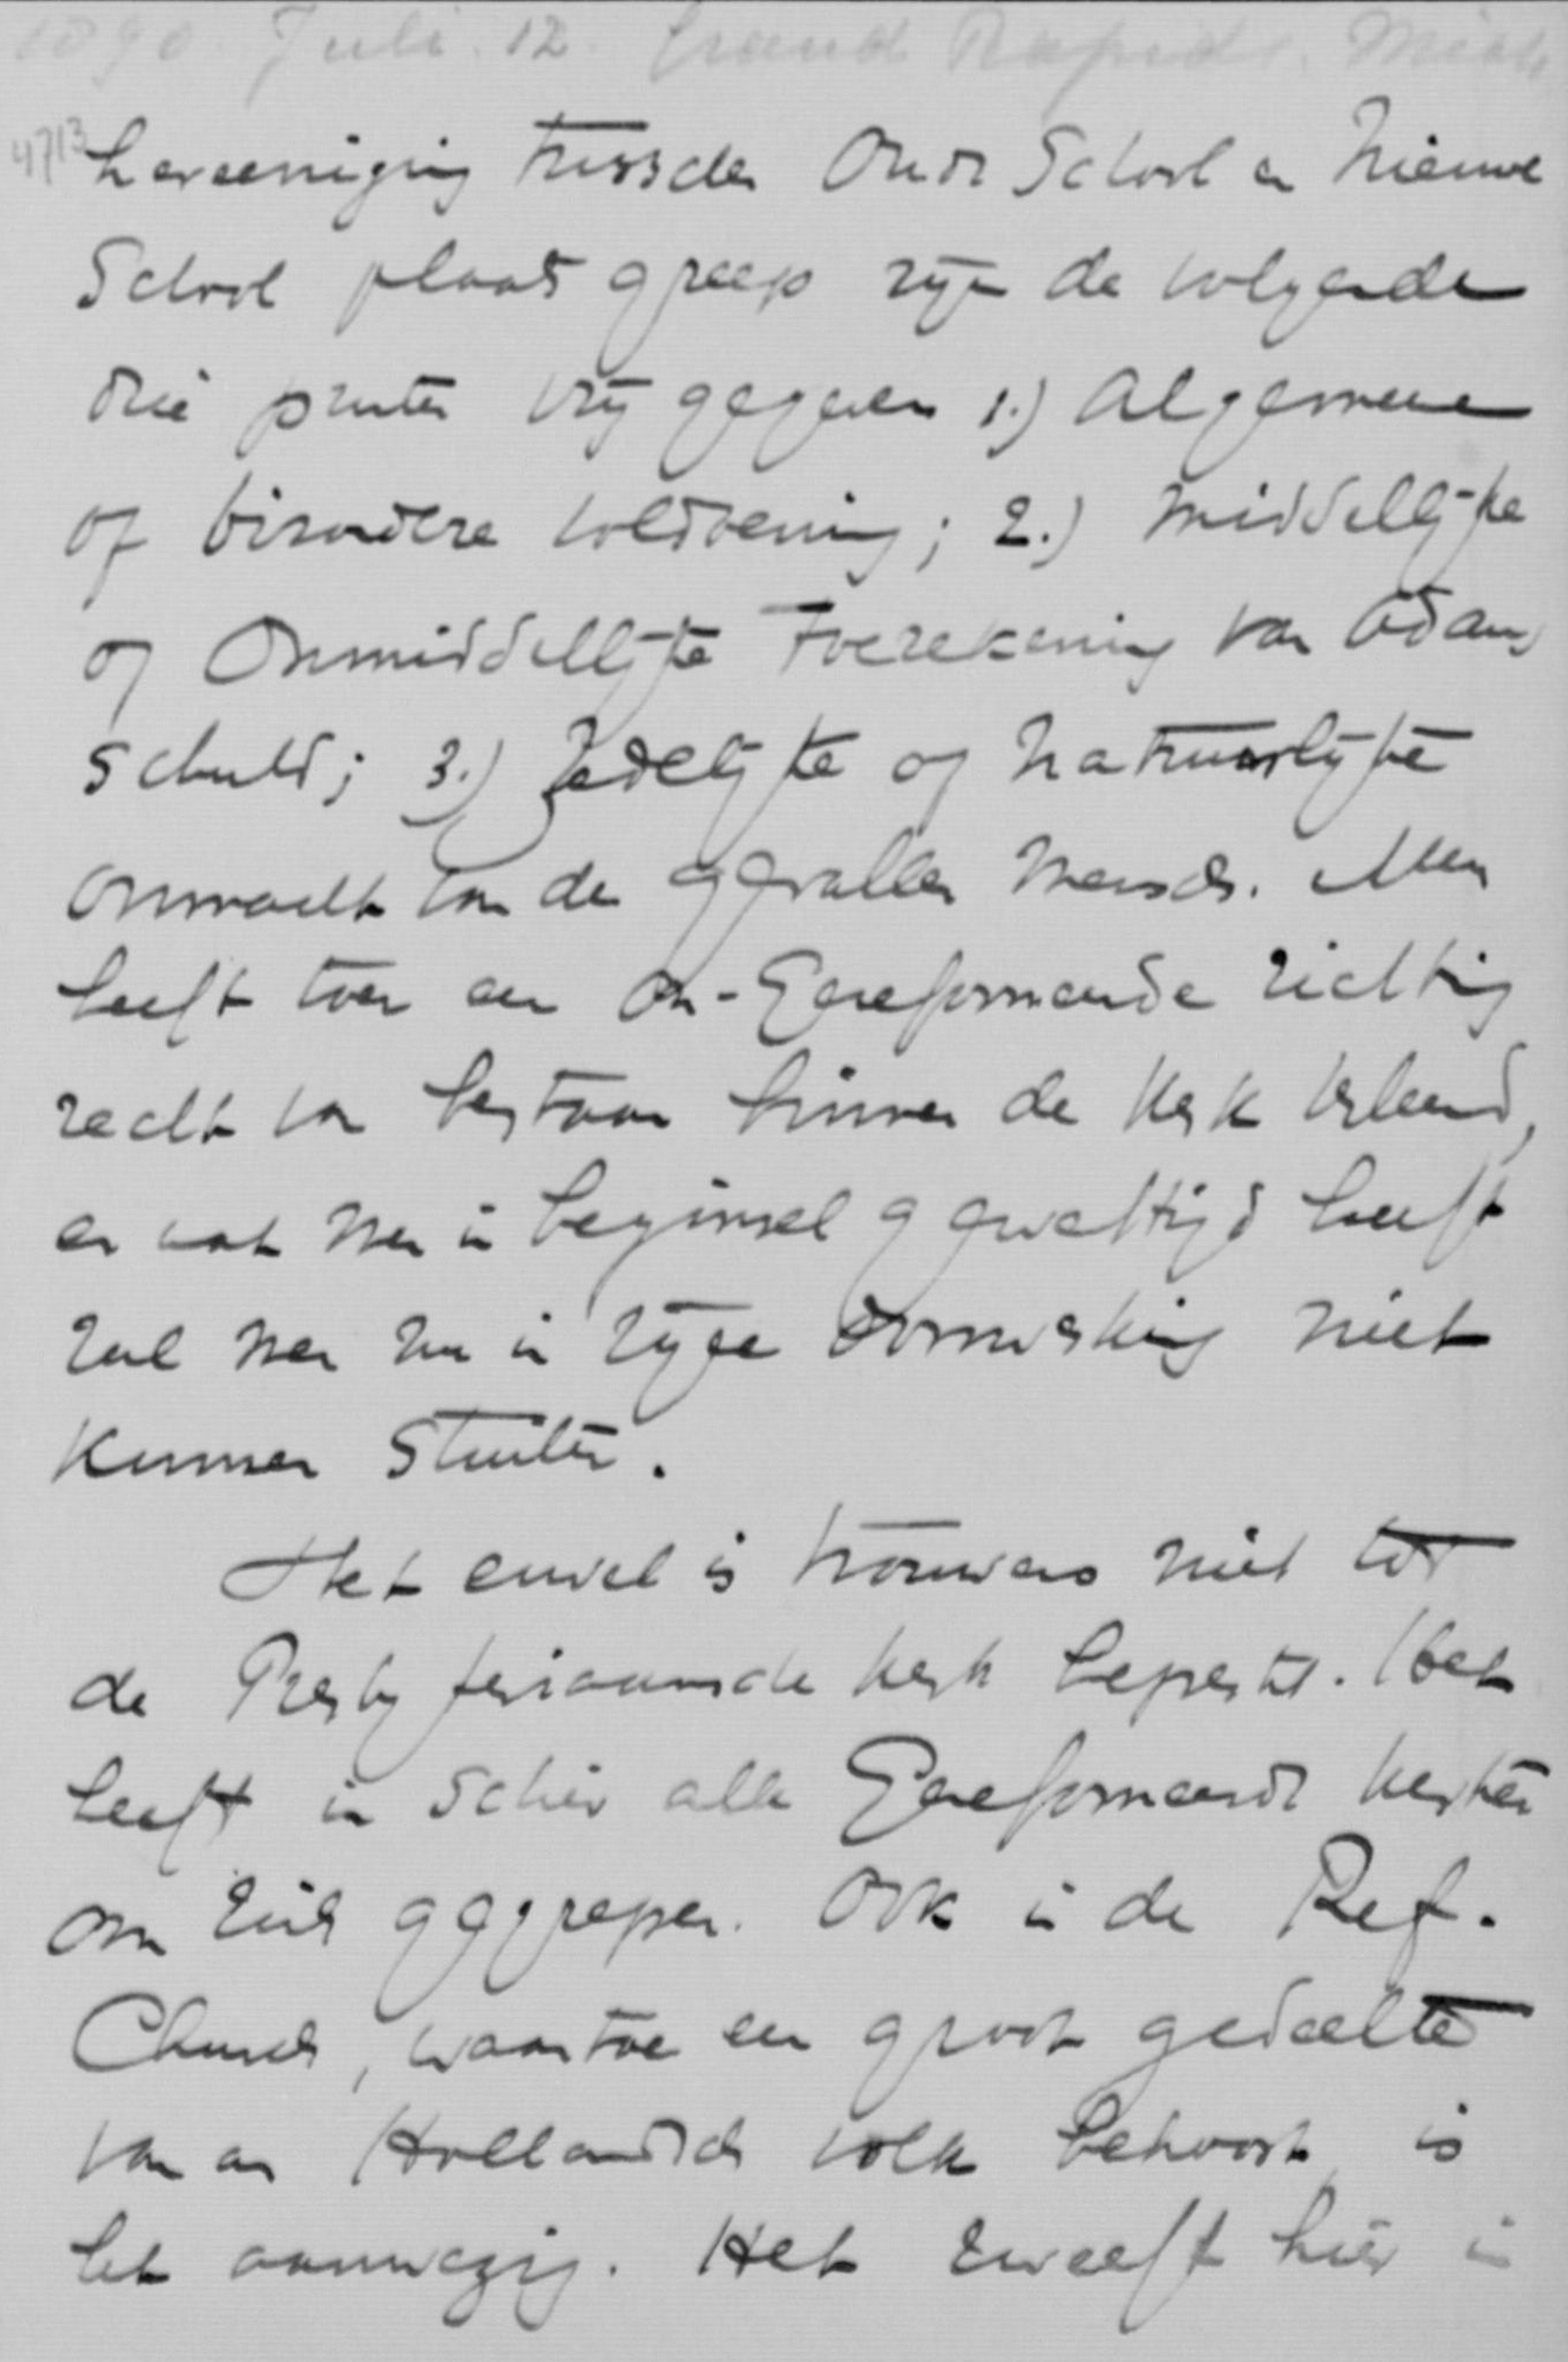 1890. Juli. 12. Grand Rapids. Mich
4713
hereeniging tusschen Oude School en Nieuwe
School plaats greep zijn de volgende
drie punten vrij gegeven 1.) Algemeene
of bizondere voldoening; 2.) Middellijke
of Onmiddellijke Toerekening van Adams
schuld; 3.) Zedelijke of Natuurlijke
onmacht van de gevallen Mensch. Men
heeft toen een on-Gereformeerde richting
recht van bestaan binnen de Kerk verleend,
en wat men in beginsel gewettigd heeft
zal men nu in zijne doorwerking niet
Kunnen Stuiten.
Het euvel is trouwens niet tot
de Presbyteriaansche Kerk beperkt. Het
heeft in schier alle Gereformeerde Kerken
om zich gegrepen. Ook in de Ref.
Church, waartoe een groot gedeelte
van ons Hollandsch volk behoort is
het aanwezig. Het zweeft hier in